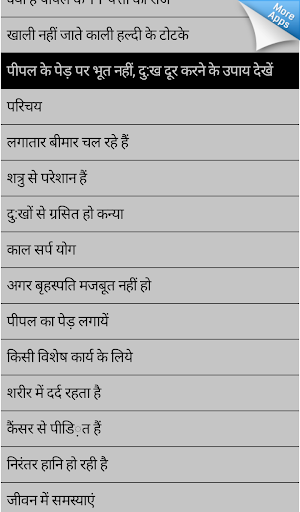 क्या है पीपल के 11 पत्तों का राज
More
Apps
खाली नहीं जाते काली हल्दी के टोटके
पीपल के पेड़ पर भूत नहीं, दु:ख दूर करने के उपाय देखें
परिचय
लगातार बीमार चल रहे हैं
शत्रु से परेशान हैं
दु:खों से ग्रसित हो कन्या
काल सर्प योग
अगर बृहस्पति मजबूत नहीं हो
पीपल का पेड़ लगायें
किसी विशेष कार्य के लिये
शरीर में दर्द रहता है
कैंसर से पीडि़त हैं
निरंतर हानि हो रही है
जीवन में समस्याएं